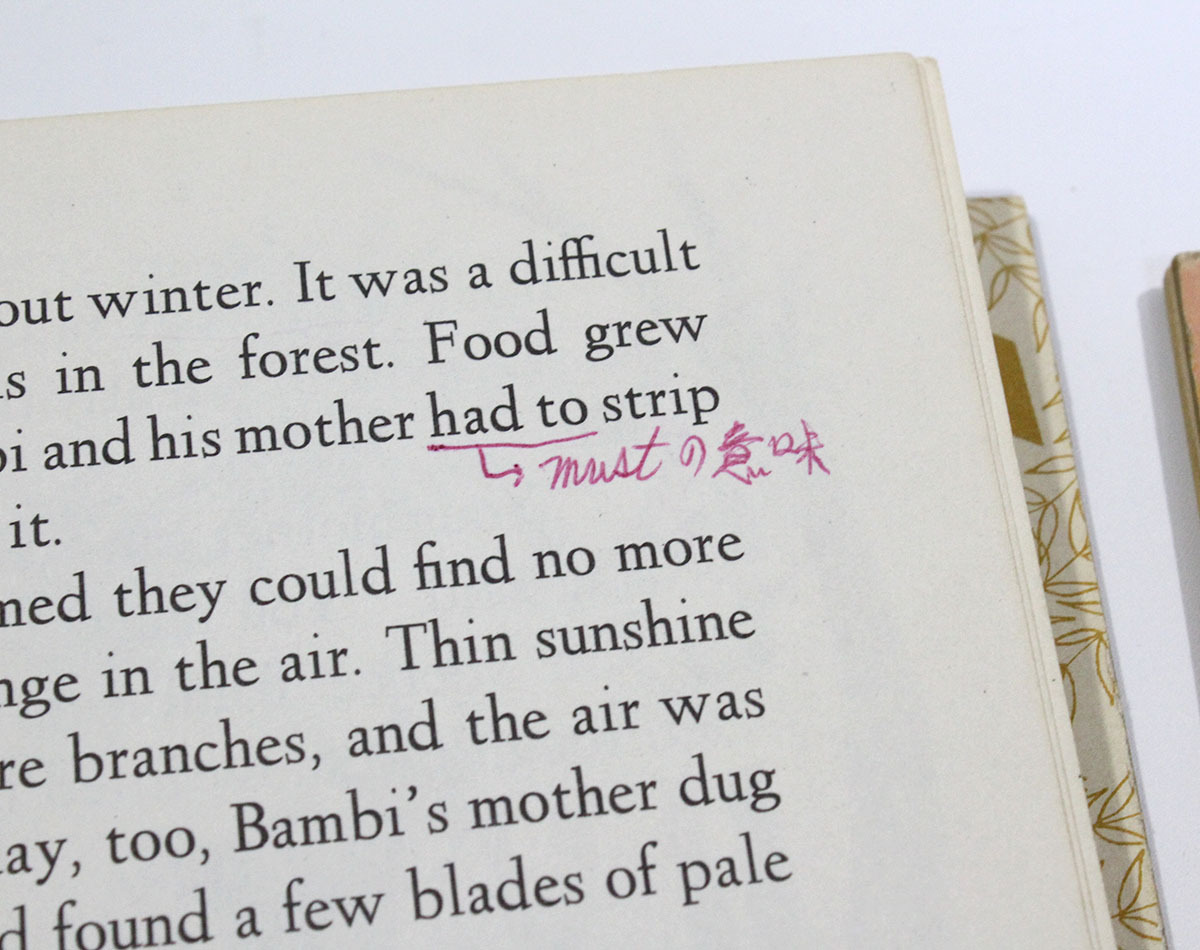 out winter. It was a difficult
in the forest. Food grew
and his mother had to strip
mustの意味
it.
they could find no more
in the air. Thin sunshine
branches, and the air was
too, Bambi's mother dug
found a few blades of pale